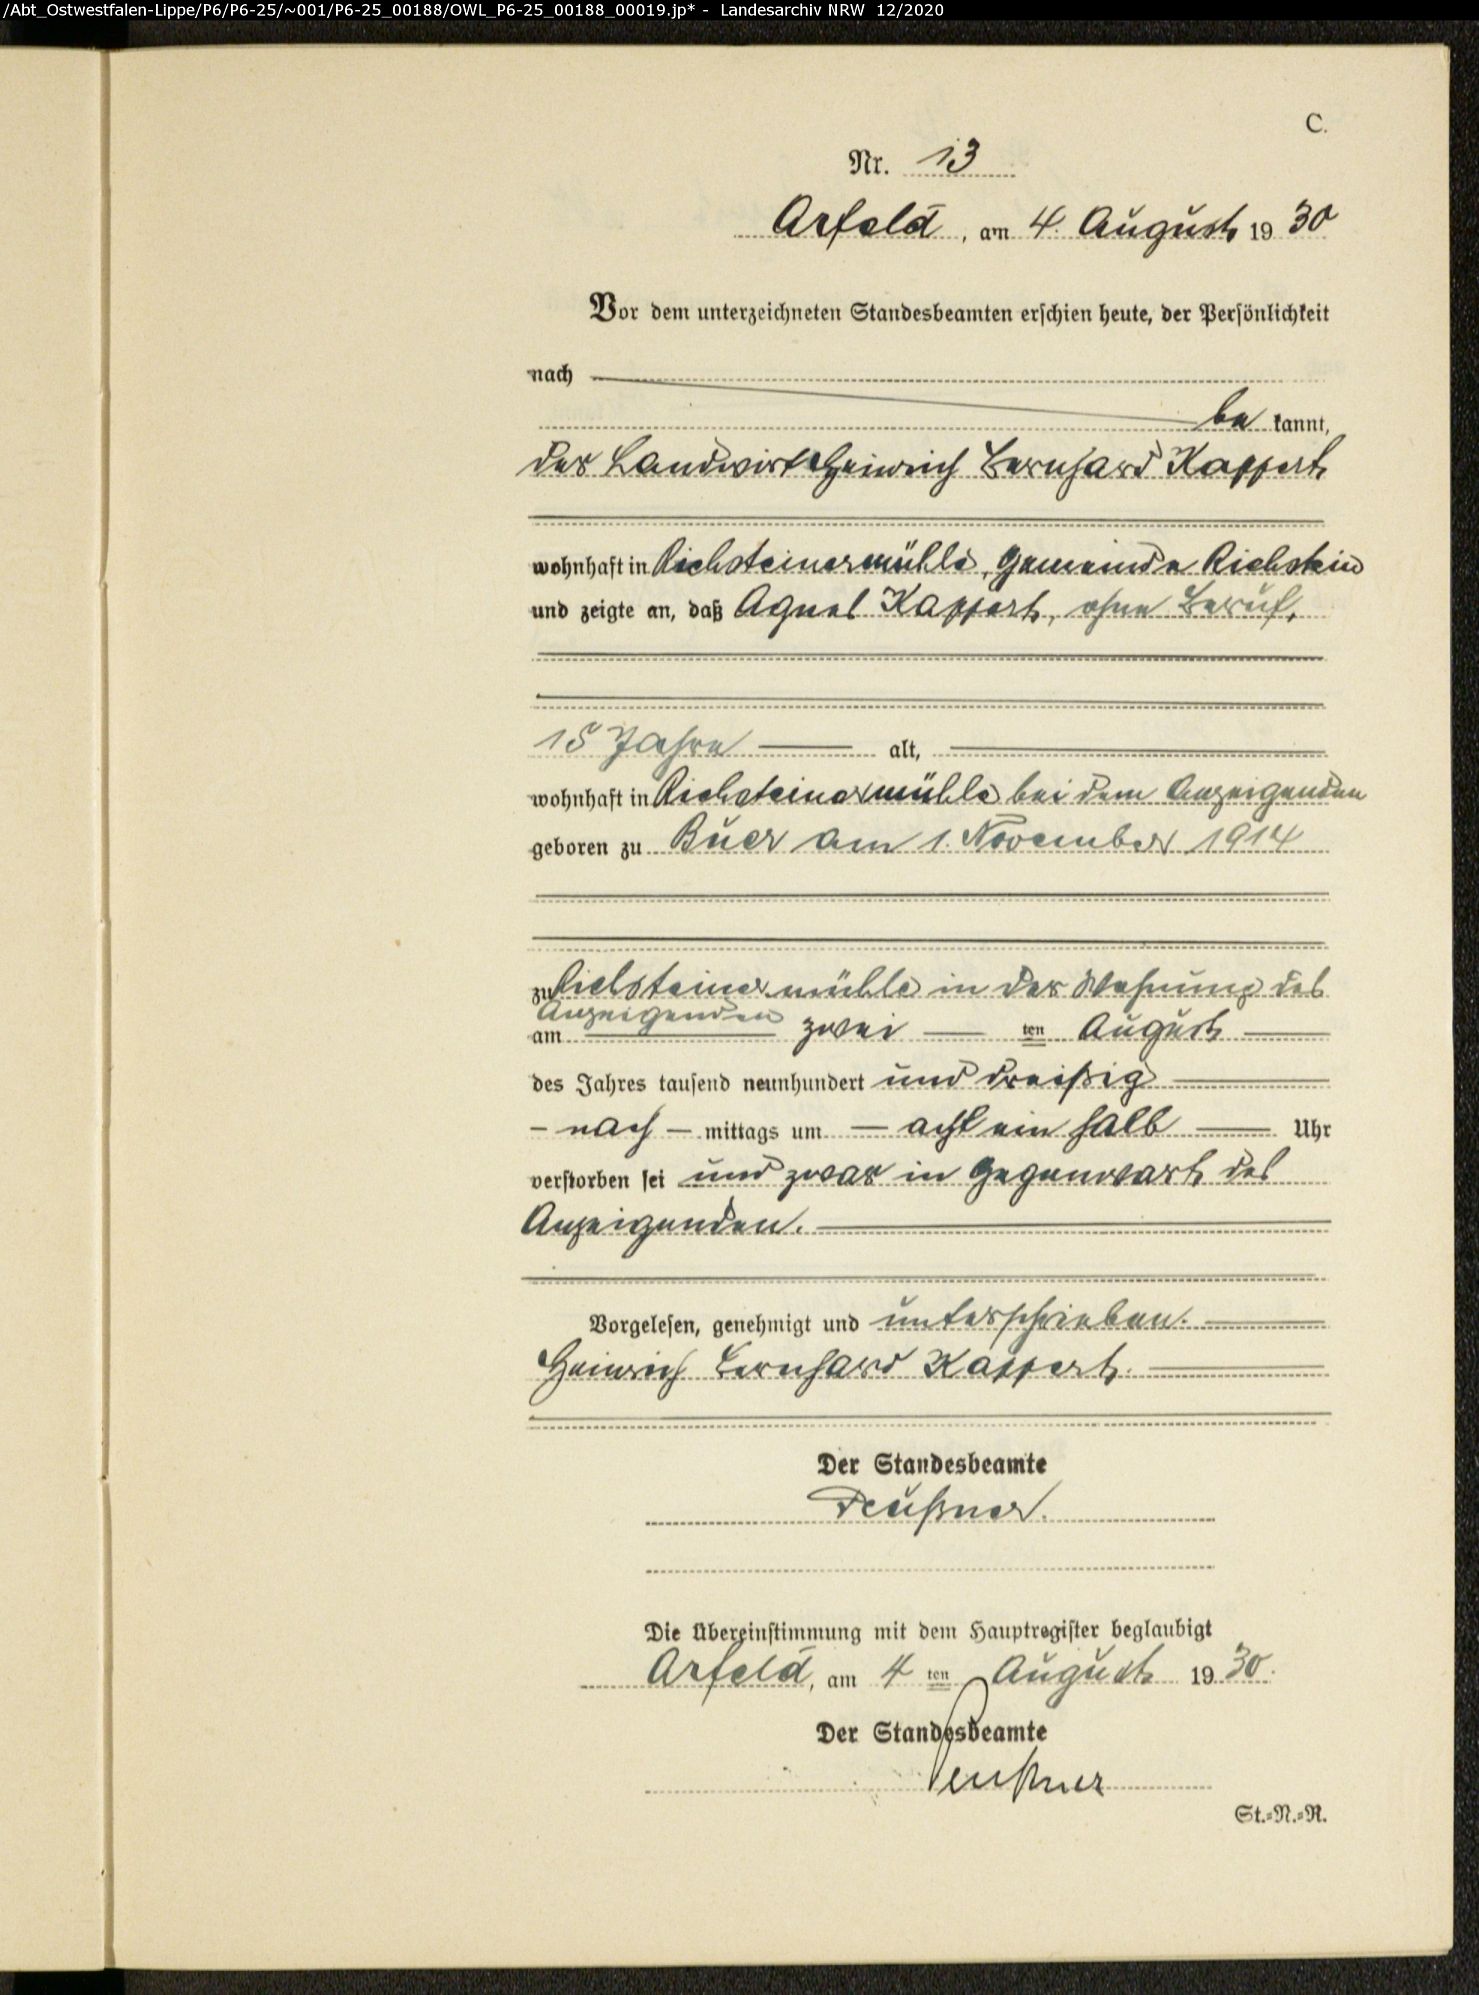 /Abt_Ostwestfalen-Lippe/P6/P6-25/~001/P6-25_00188/OWL_P6-25_00188_00019.jp* - Landesarchiv NRW 12/2020
C.
Nr. 13
Arfeld, am 4. August 1930
Vor dem unterzeichneten Standesbeamten erschien heute, der Persönlichkeit
nach
be kannt,
der Landwirt Heinrich Bernhard Kappert
wohnhaft in Richsteinermühle, Gemeinde Richstein
und zeigte an, daß Agnes Kappert, ohne Beruf,
15 Jahre — alt,
wohnhaft in Richsteinermühle bei dem Anzeigenden
geboren zu Buer am 1. November 1914
zu Richsteinermühle in der Wohnung des
Anzeigenden
am zwei — ten August —
des Jahres tausend neunhundert und dreißig —
- nach - mittags um — acht ein halb — Uhr
verstorben sei und zwar in Gegenwart des
Anzeigenden.
Vorgelesen, genehmigt und unterschrieben.
Heinrich Bernhard Kappert.
Der Standesbeamte
Die Übereinstimmung mit dem Hauptregister beglaubigt
Arfeld, am 4 ten August 1930.
Der Standesbeamte
St.=N.=R.